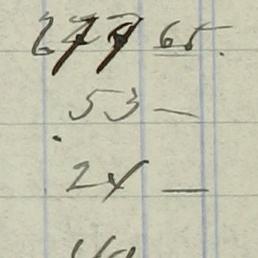 677 65
53 —
24 —